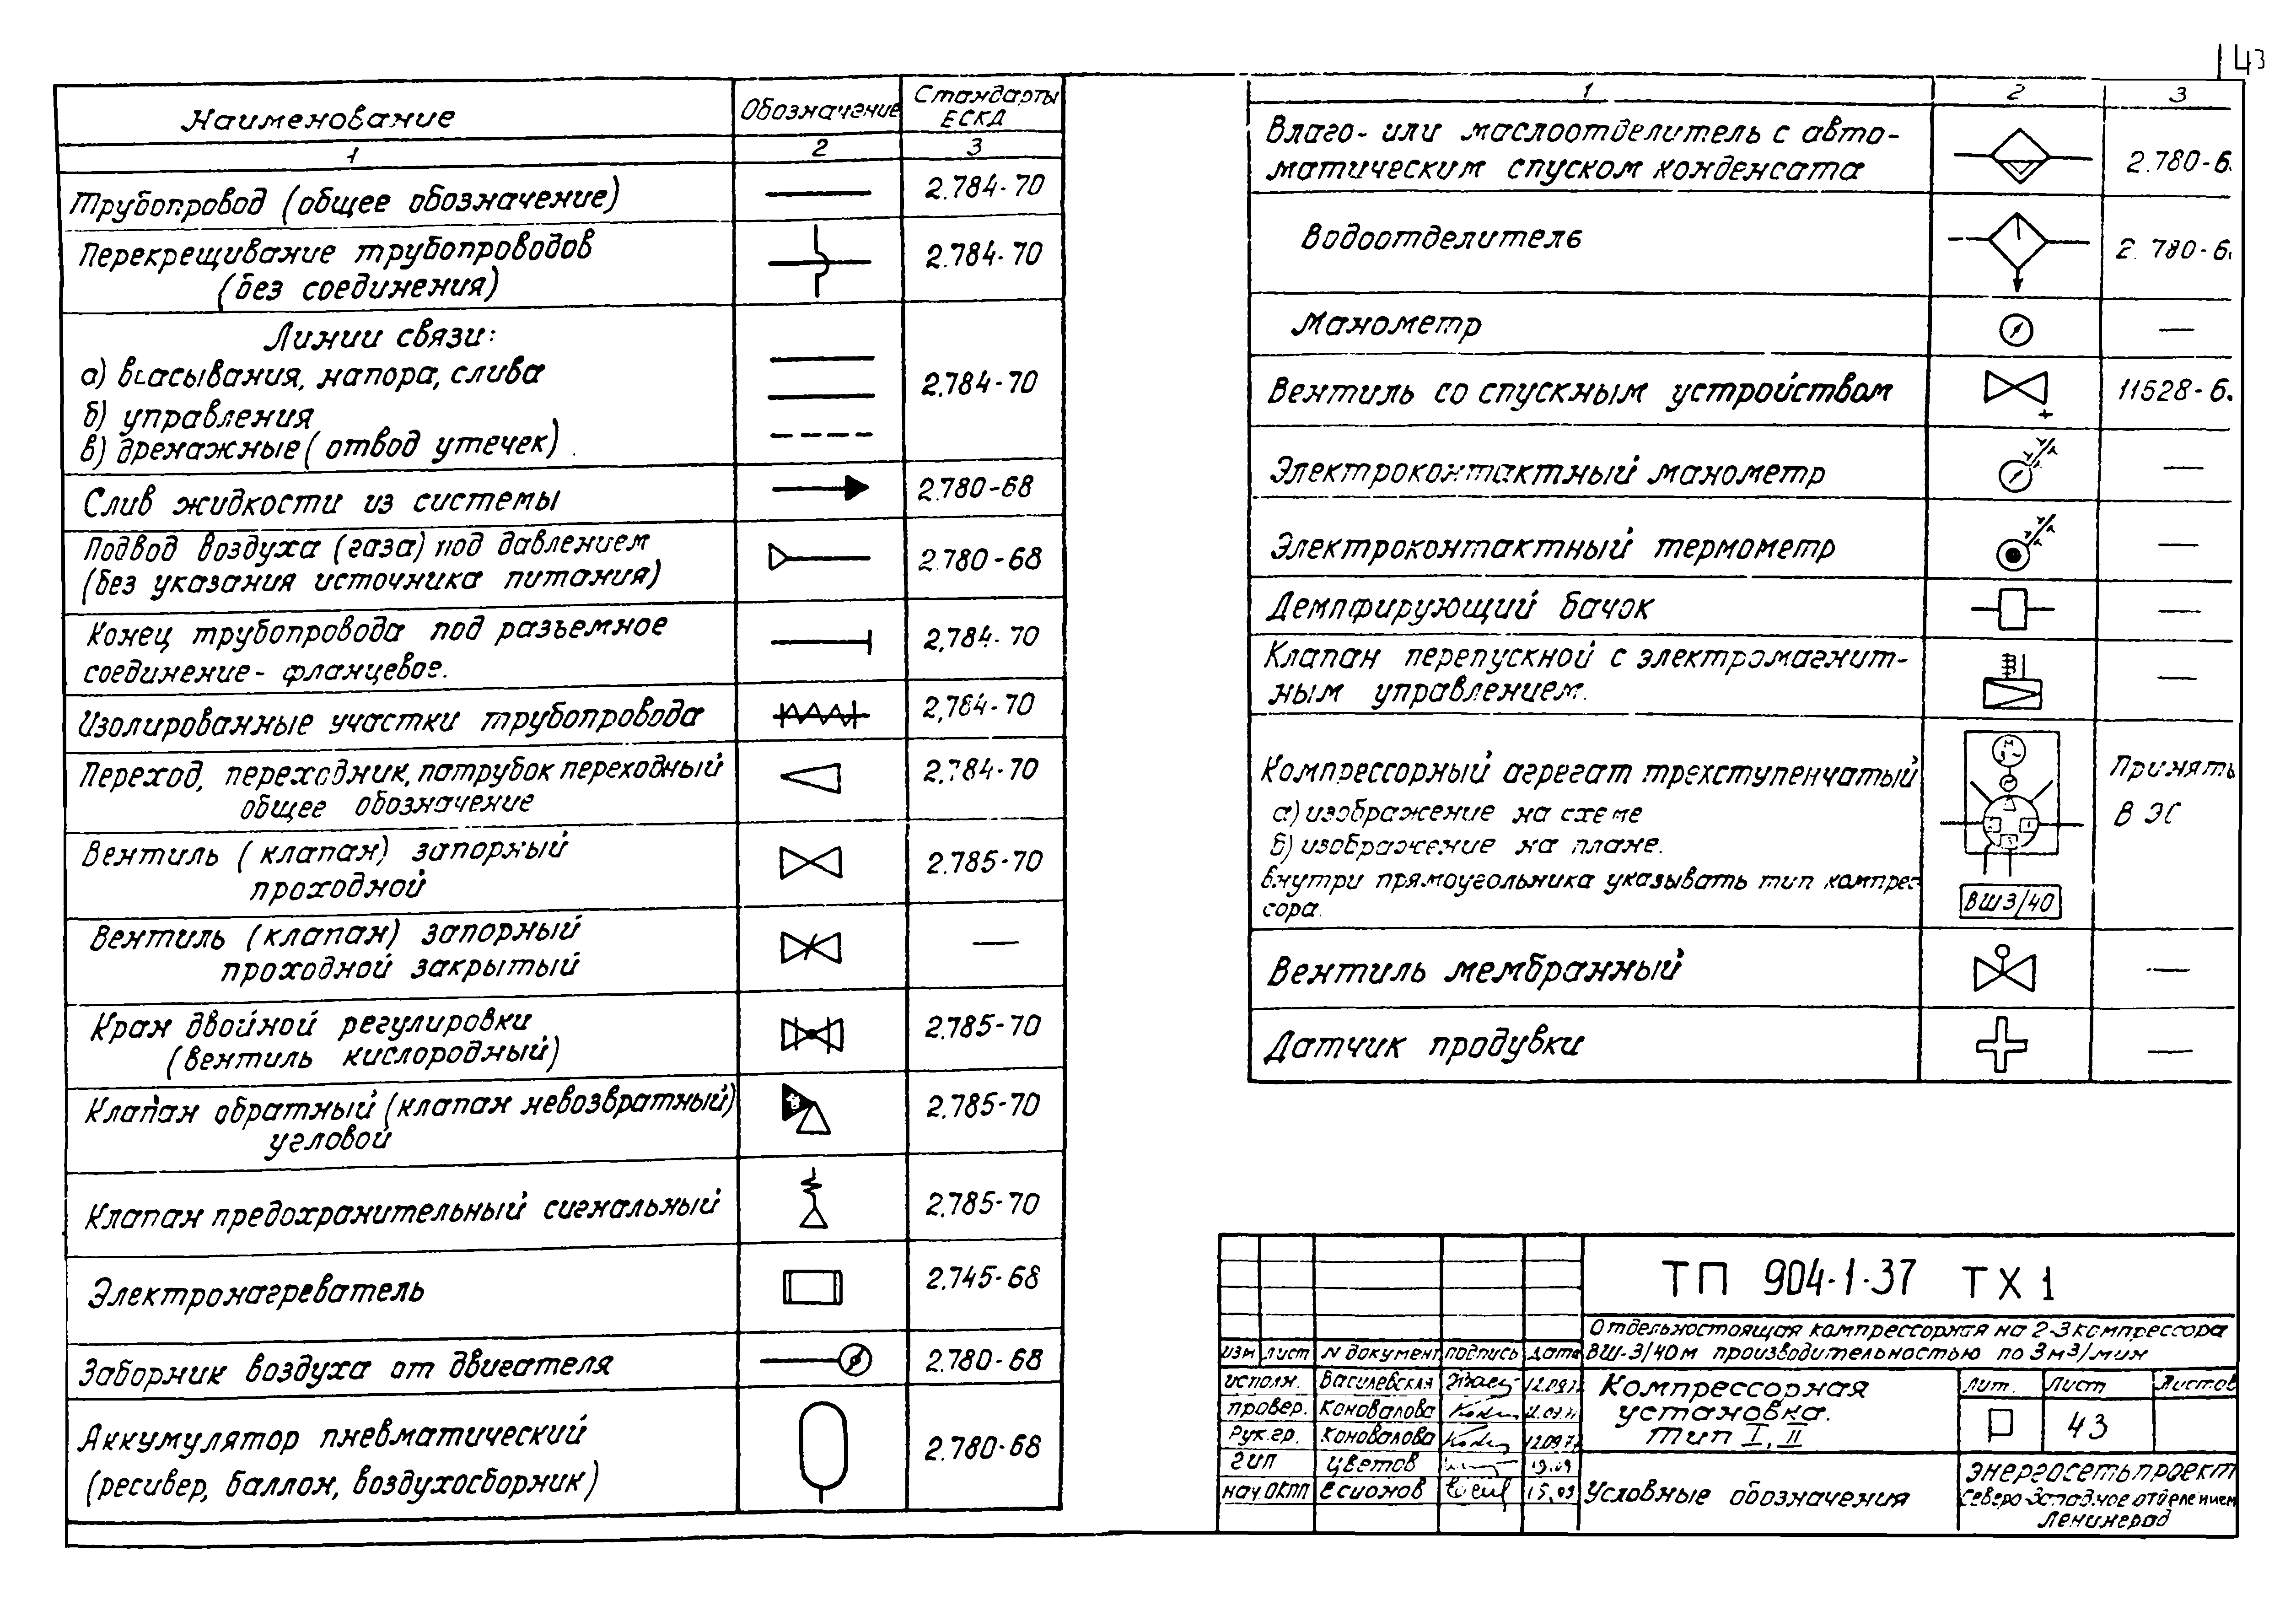 43
Наименование
Обозначение
Стандарты
ЕСКД
1
2
3
Трубопровод (общее обозначение)
2.784-70
Перекрещивание трубопроводов
(без соединения)
2.784-70
Линии связи:
а) всасывания, напора, слива
б) управления
в) дренажные (отвод утечек)
2.784-70
Слив жидкости из системы
2.780-68
Подвод воздуха (газа) под давлением
(без указания источника питания)
2.780-68
Конец трубопровода под разъемное
соединение - фланцевое.
2.784-70
Изолированные участки трубопровода
2.784-70
Переход, переходник, патрубок переходный
общее обозначение
2.784-70
Вентиль (клапан) запорный
проходной
2.785-70
Вентиль (клапан) запорный
проходной закрытый
—
Кран двойной регулировки
(вентиль кислородный)
2.785-70
Клапан обратный (клапан невозвратный)
угловой
2.785-70
Клапан предохранительный сигнальный
2.785-70
Электронагреватель
2.745-68
Заборник воздуха от двигателя
2.780-68
Аккумулятор пневматический
(ресивер, баллон, воздухосборник)
2.780-68
1
2
3
Влаго- или маслоотделитель с авто-
матическим спуском конденсата
2.780-6
Водоотделитель
2.780-6
Манометр
—
Вентиль со спускным устройством
11628-6
Электроконтактный манометр
—
Электроконтактный термометр
—
Демпфирующий бачок
—
Клапан перепускной с электромагнит-
ным управлением.
—
Компрессорный агрегат трехступенчатый
а) изображение на схеме
б) изображение на плане.
внутри прямоугольника указывать тип компрес
сора.
М
ВШ3/40
Принять
В ЭС
Вентиль мембранный
—
Датчик продувки
—
ТП 904-1-37 ТХ1
Отдельностоящая компрессорная на 2-3 компрессора
ВШ-3/40м производительностью по 3м³/мин
изм лист N документ подпись дата
исполн. Василевская
провер. Коновалова
Рук.гр. Коновалова
гип Цветов
нач ОКПП Есионов
Компрессорная
установка.
Тип I, II
Лит. Лист Листов
Р 43
Условные обозначения
Энергосетьпроект
Северо-Западное отделением
Ленинград